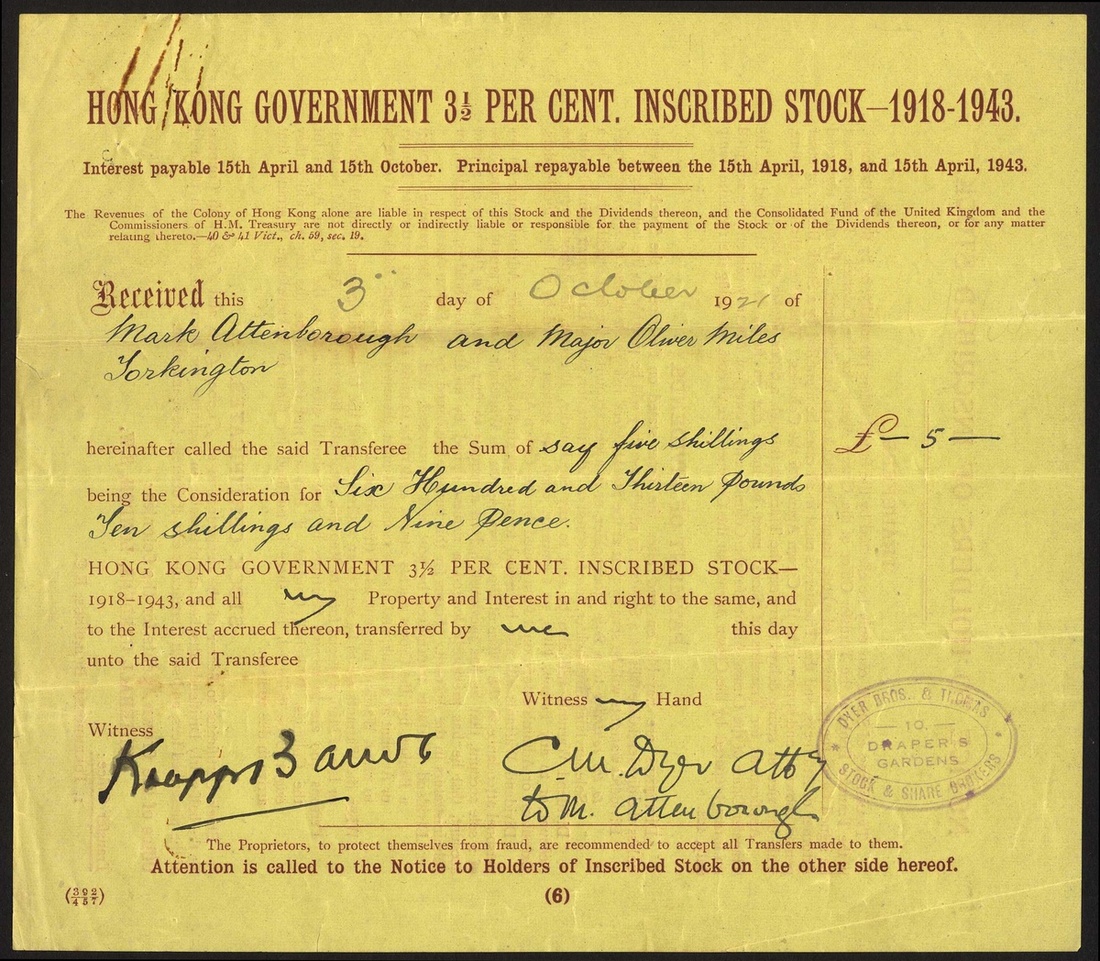 HONG KONG GOVERNMENT 3½ PER CENT. INSCRIBED STOCK—1918-1943.
Interest payable 15th April and 15th October. Principal repayable between the 15th April, 1918, and 15th April, 1943.
The Revenues of the Colony of Hong Kong alone are liable in respect of this Stock and the Dividends thereon, and the Consolidated Fund of the United Kingdom and the
Commissioners of H.M. Treasury are not directly or indirectly liable or responsible for the payment of the Stock or of the Dividends thereon, or for any matter
relating thereto.—40 & 41 Vict., ch. 59, sec. 19.
Received this 3 day of October 1921 of
Mark Attenborough and Major Oliver Miles
Torkington
hereinafter called the said Transferee the Sum of say five shillings £— 5 —
being the Consideration for Six Hundred and Thirteen Pounds
Ten shillings and Nine Pence.
HONG KONG GOVERNMENT 3½ PER CENT. INSCRIBED STOCK—
1918–1943, and all my Property and Interest in and right to the same, and
to the Interest accrued thereon, transferred by me this day
unto the said Transferee
Witness my Hand
Witness
C.M. Dyer Atty
to M. Attenborough
DYER BROS. & THOMAS
10.
DRAPER'S
GARDENS
STOCK & SHARE BROKERS
The Proprietors, to protect themselves from fraud, are recommended to accept all Transfers made to them.
Attention is called to the Notice to Holders of Inscribed Stock on the other side hereof.
(392/457) (6)